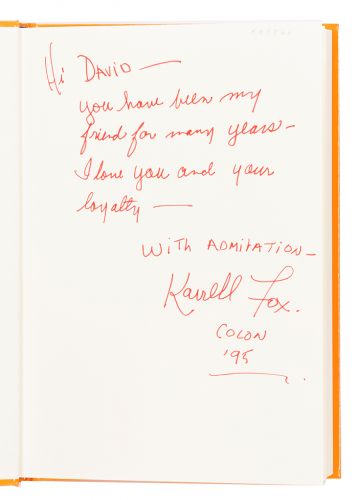 Hi DAVID —
you have been my
friend for many years -
I love you and your
loyalty —
WITH ADMIRATION -
Karrell Fox.
COLON
'95